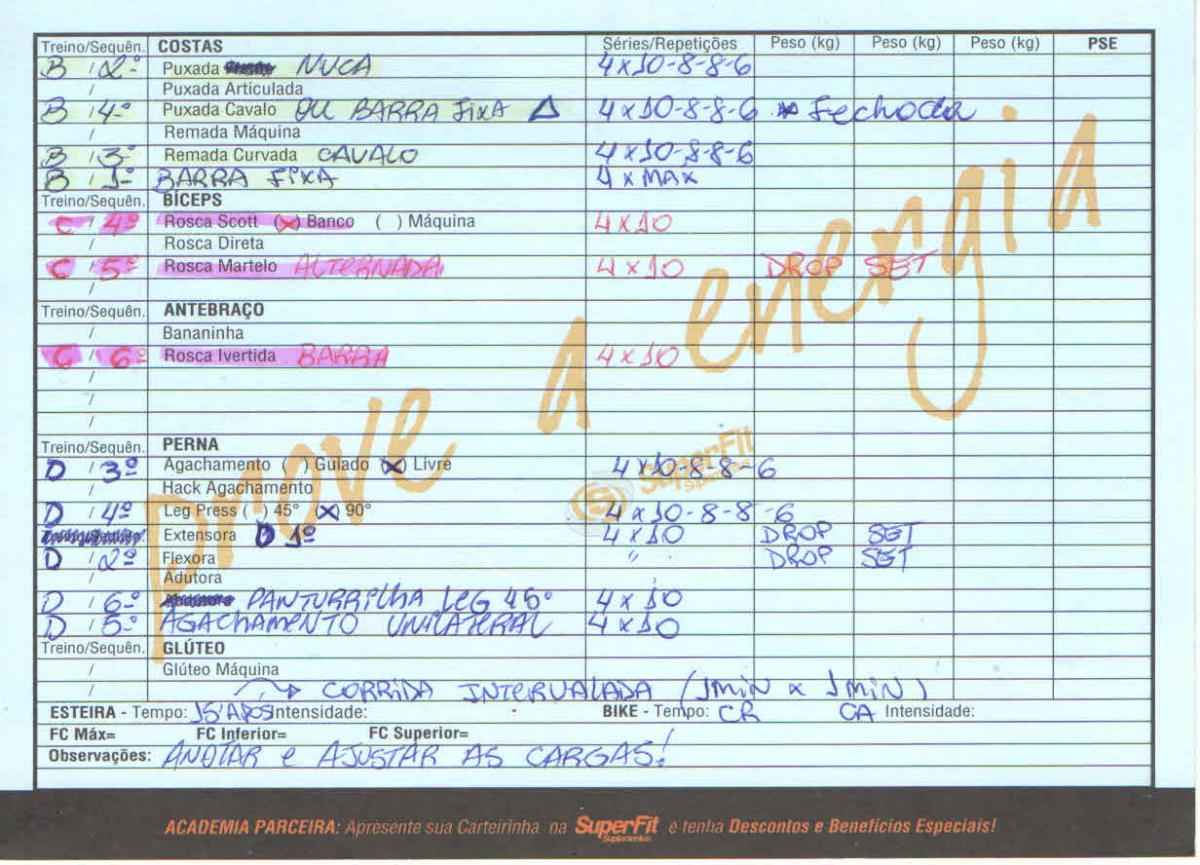 Treino/Sequên. COSTAS Séries/Repetições Peso (kg) Peso (kg) Peso (kg) PSE
B / 2º Puxada NUCA 4x10-8-8-6
/ Puxada Articulada
B / 4º Puxada Cavalo OU BARRA FIXA Δ 4x10-8-8-6 Fechada
/ Remada Máquina
B / 3º Remada Curvada CAVALO 4x10-8-8-6
B / 1º BARRA FIXA 4 x MAX
Treino/Sequên. BÍCEPS
C / 4º Rosca Scott (x) Banco ( ) Máquina 4x10
/ Rosca Direta
C / 5º Rosca Martelo ALTERNADA 4x10 DROP SET
/
Treino/Sequên. ANTEBRAÇO
/ Bananinha
C / 6º Rosca Ivertida BARRA 4x10
/
/
/
Treino/Sequên. PERNA
D / 3º Agachamento ( ) Guiado (x) Livre 4x10-8-8-6
/ Hack Agachamento
D / 4º Leg Press ( ) 45° (x) 90° 4x10-8-8-6
Extensora D 1º 4x10 DROP SET
D / 2º Flexora " DROP SET
/ Adutora
D / 6º PANTURRILHA LEG 45° 4x10
D / 5º AGACHAMENTO UNILATERAL 4x10
Treino/Sequên. GLÚTEO
/ Glúteo Máquina
/ → CORRIDA INTERVALADA (1MIN x 1MIN)
ESTEIRA - Tempo: 15' APOS Intensidade: - BIKE - Tempo: CR CA Intensidade:
FC Máx= FC Inferior= FC Superior=
Observações: ANOTAR e AJUSTAR AS CARGAS!
prove a energia
SuperFit
ACADEMIA PARCEIRA: Apresente sua Carteirinha na SuperFit e tenha Descontos e Benefícios Especiais!